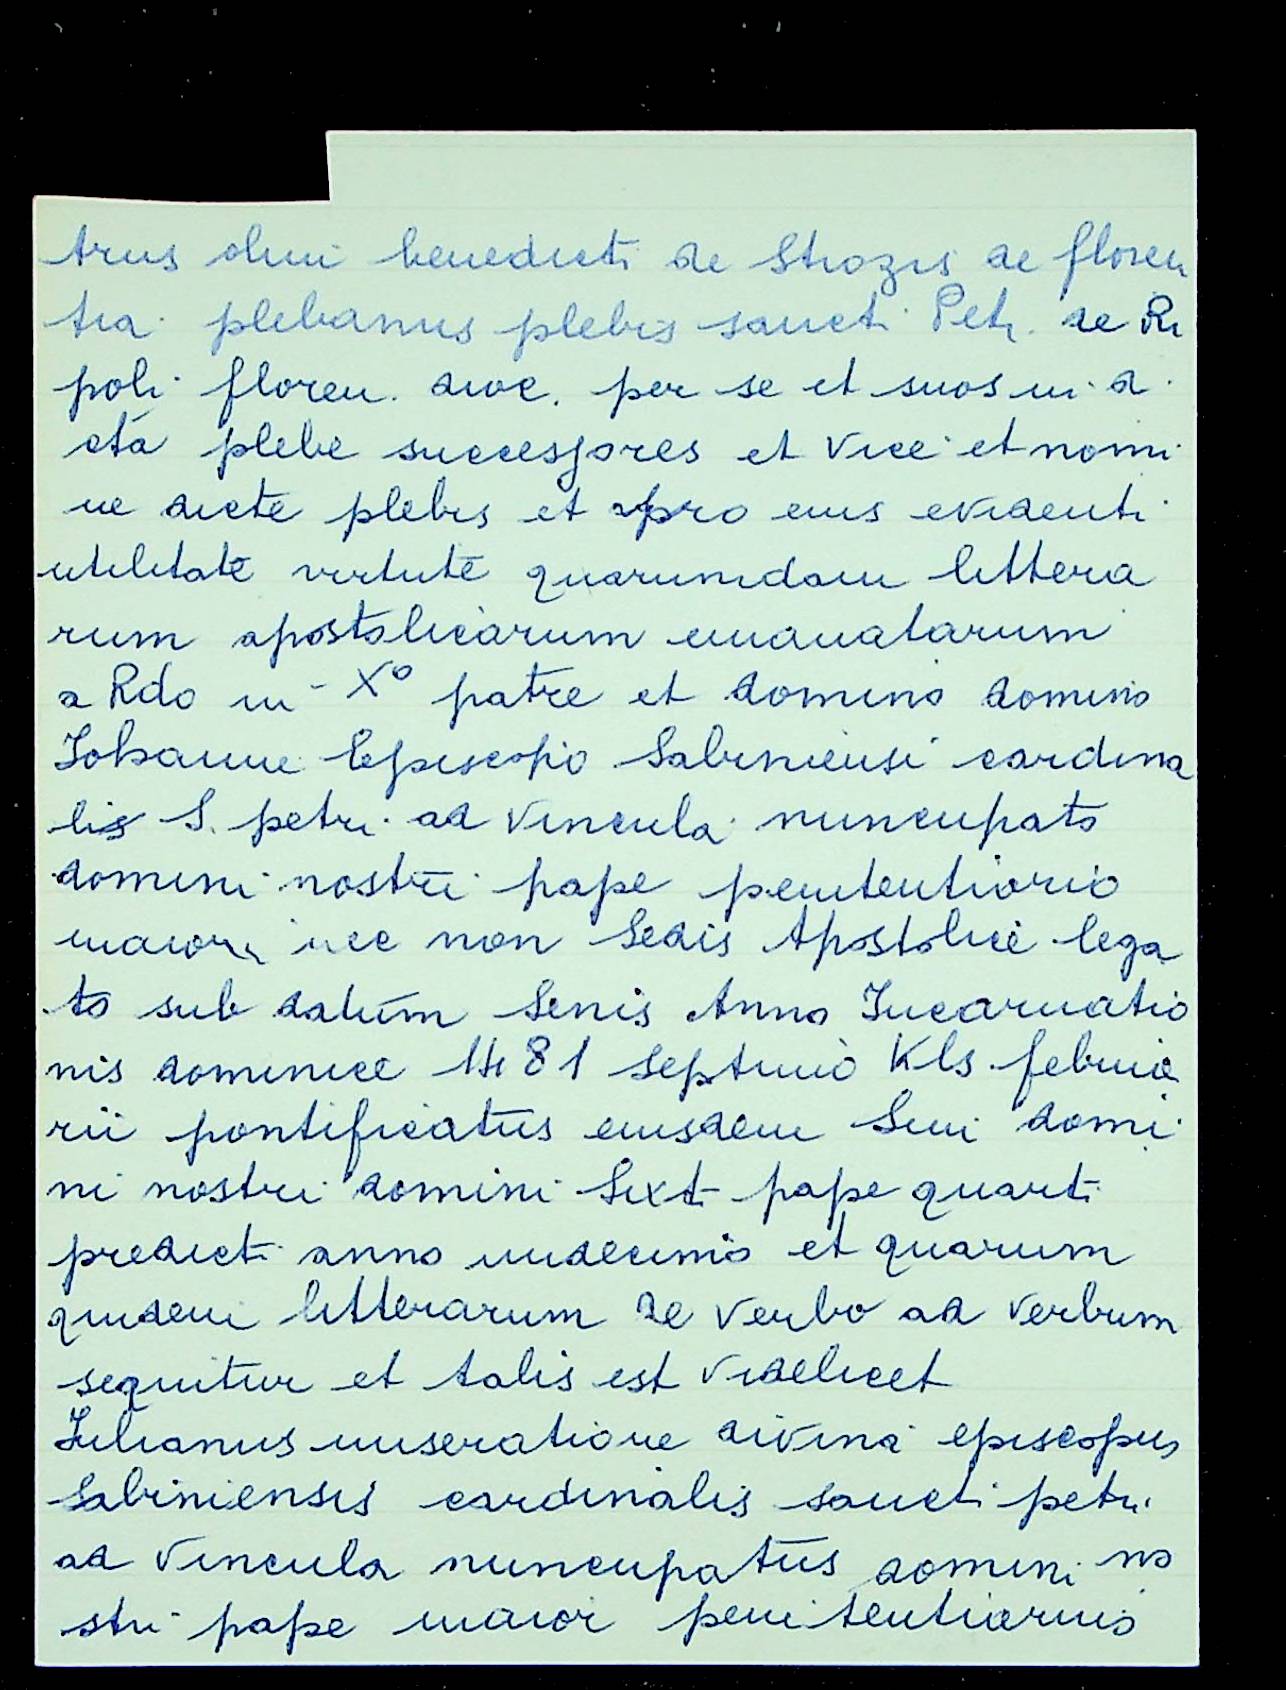 trus olim benedicti de Strozis de floren
tia plebanus plebis sancti Petri de Ri
poli floren. dioc. per se et suos in di
cta plebe successores et vice et nomi
ne dicte plebis et pro eius evidenti
utilitate virtute quarumdam littera
rum apostolicarum emanatarum
a Rdo in Xº patre et domino domino
Johanne Episcopo Sabiniensi cardina
lis S. petri ad vincula nuncupato
domini nostri pape penitentiario
maiori nec non Sedis Apostolice lega
to sub datum Senis Anno Incarnatio
nis dominice 1481 septimo Kls. februa
rii pontificatus eiusdem Smi domi
ni nostri domini Sixti pape quarti
predicti anno undecimo et quarum
quidem litterarum de verbo ad verbum
sequitur et talis est videlicet
Julianus miseratione divina episcopus
Sabiniensis cardinalis sancti petri
ad vincula nuncupatus domini no
stri pape maior penitentiarius